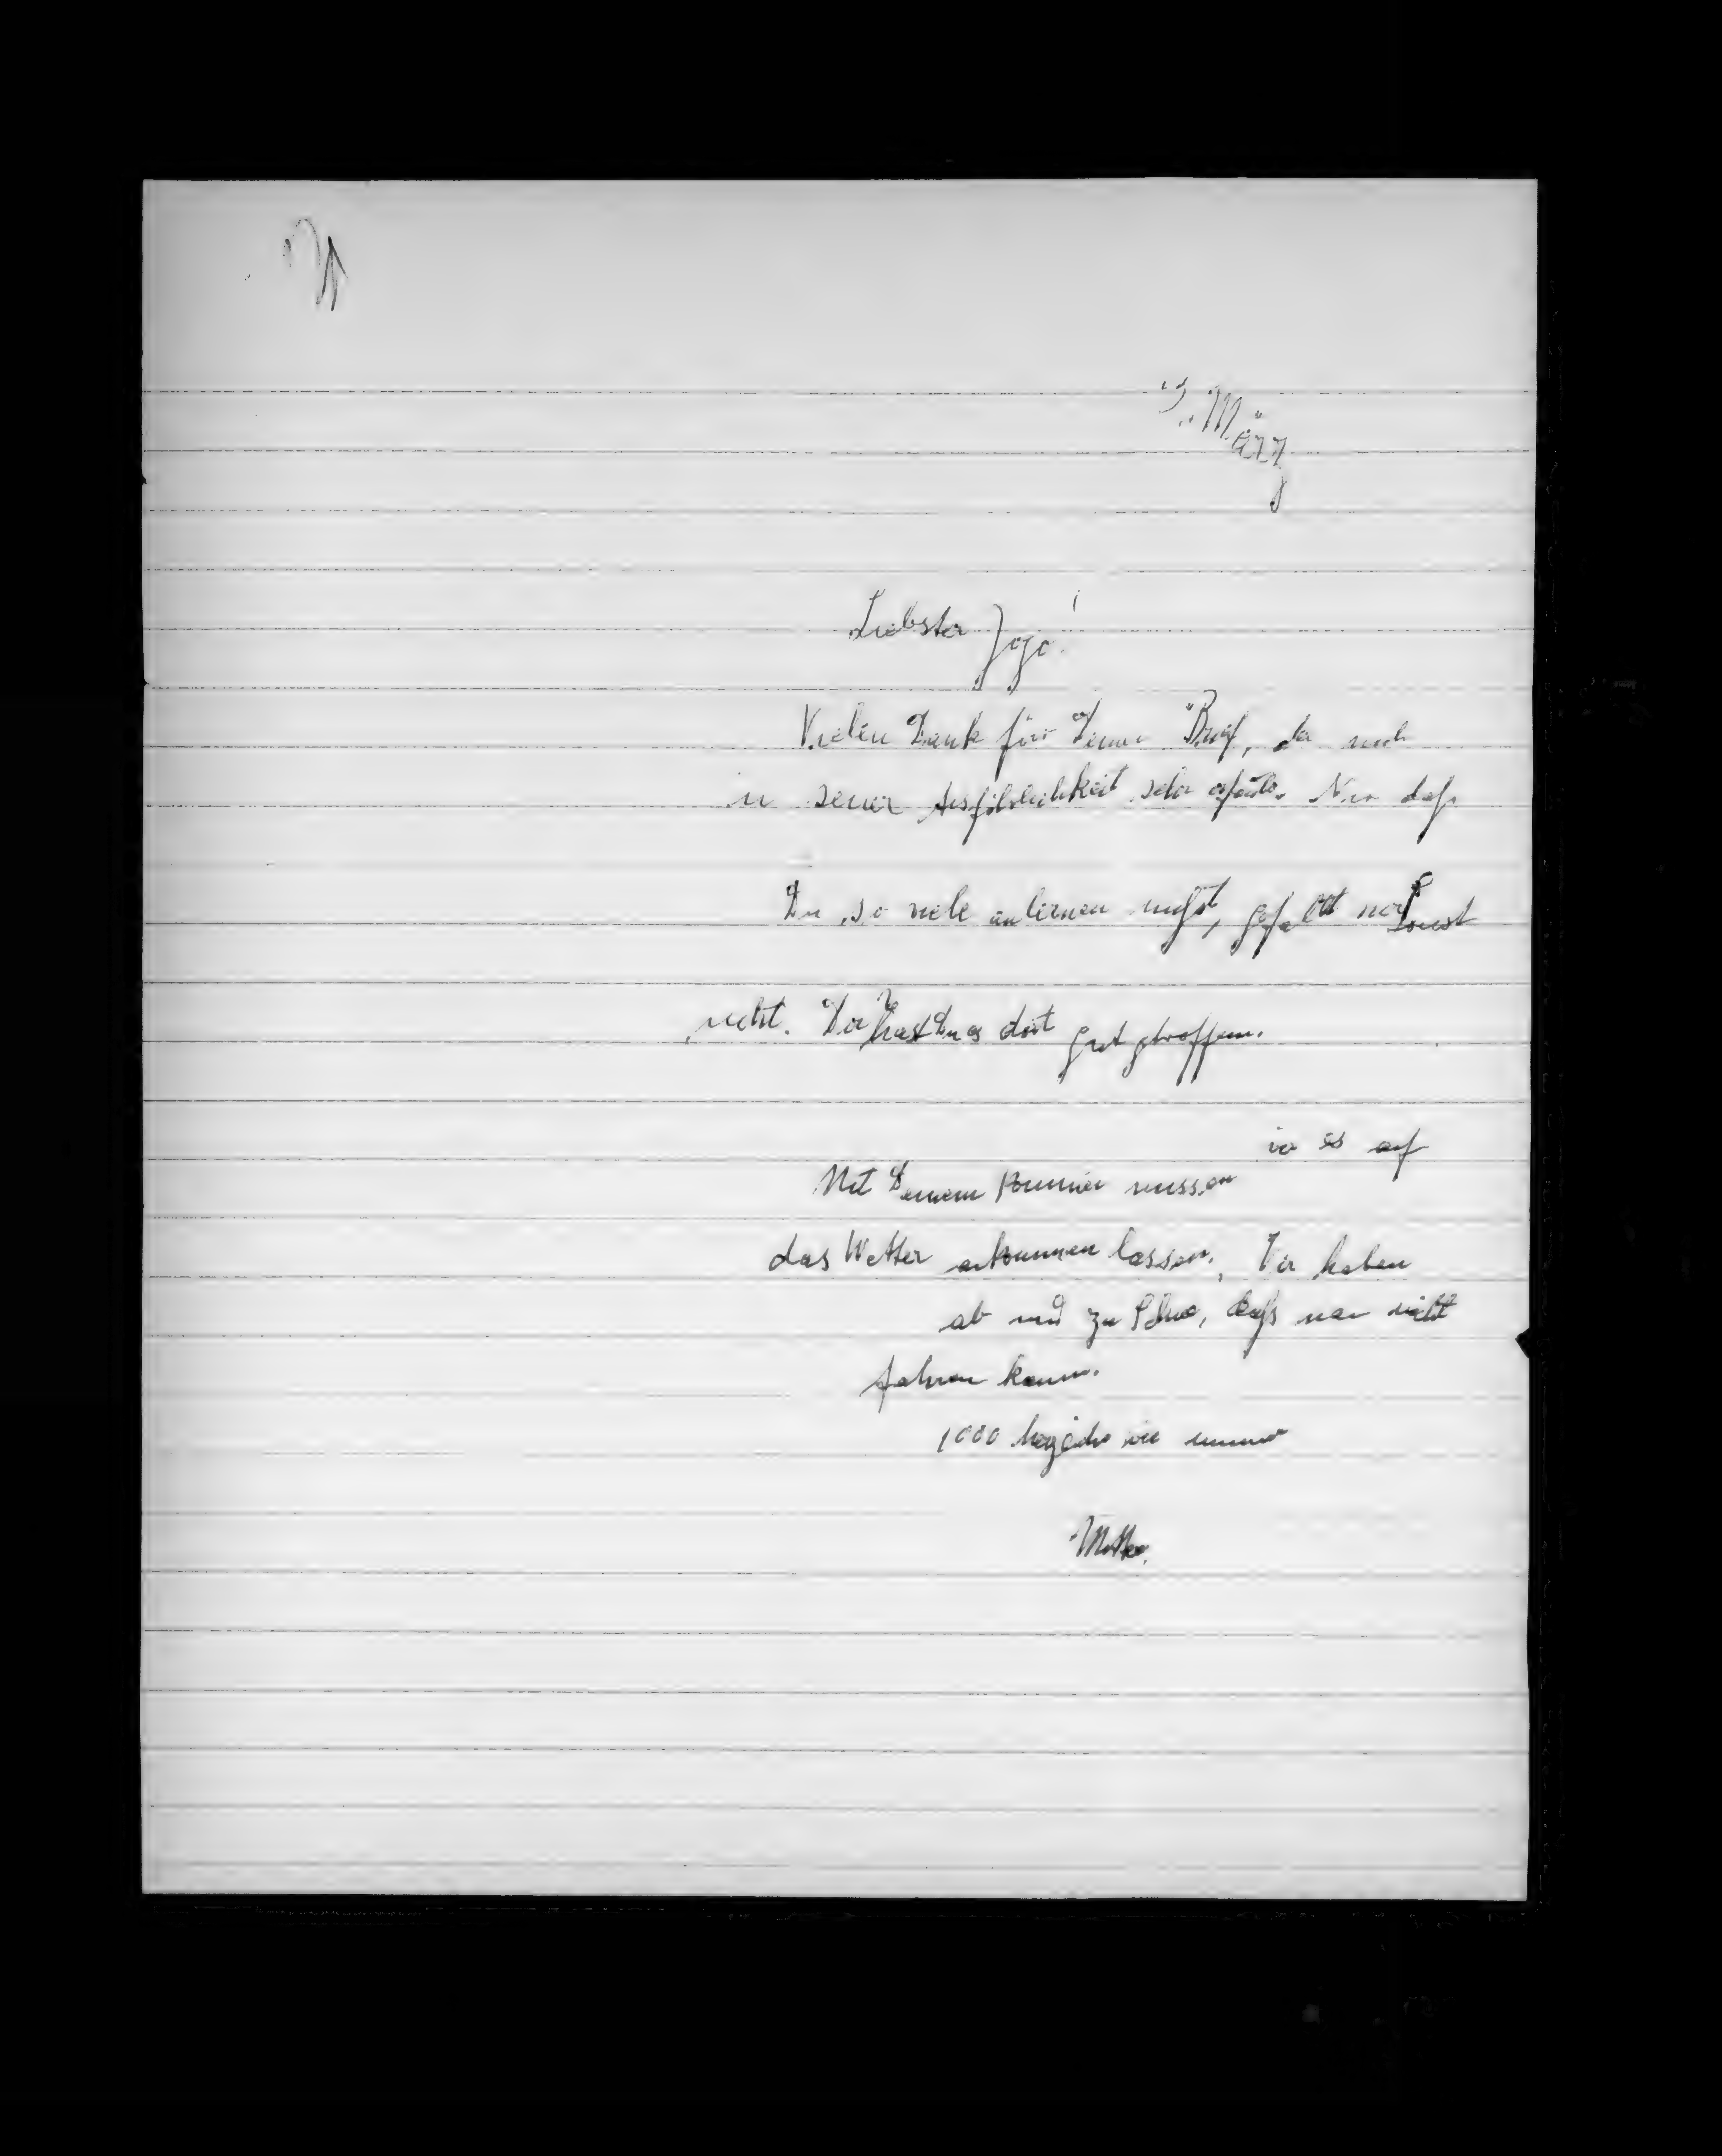 3. März
Liebster Jojo!
Vielen Dank für Deinen Brief, der mich
in seiner Ausführlichkeit sehr erfreute. Nur daß
Du so viele anlernen mußt, gefällt mir
nicht. Sonst hast Du es dort gut getroffen.
Mit Deinem Kommen müssen wir es auf
das Wetter ankommen lassen. Wir haben
ab und zu Schnee, daß man nicht
fahren kann.
1000 herzliche wie immer
Mutter.